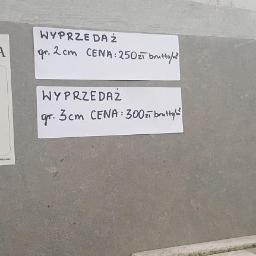 WYPRZEDAŻ
gr. 2 cm CENA: 250 zł brutto/m²
WYPRZEDAŻ
gr. 3 cm CENA: 300 zł brutto/m²
A